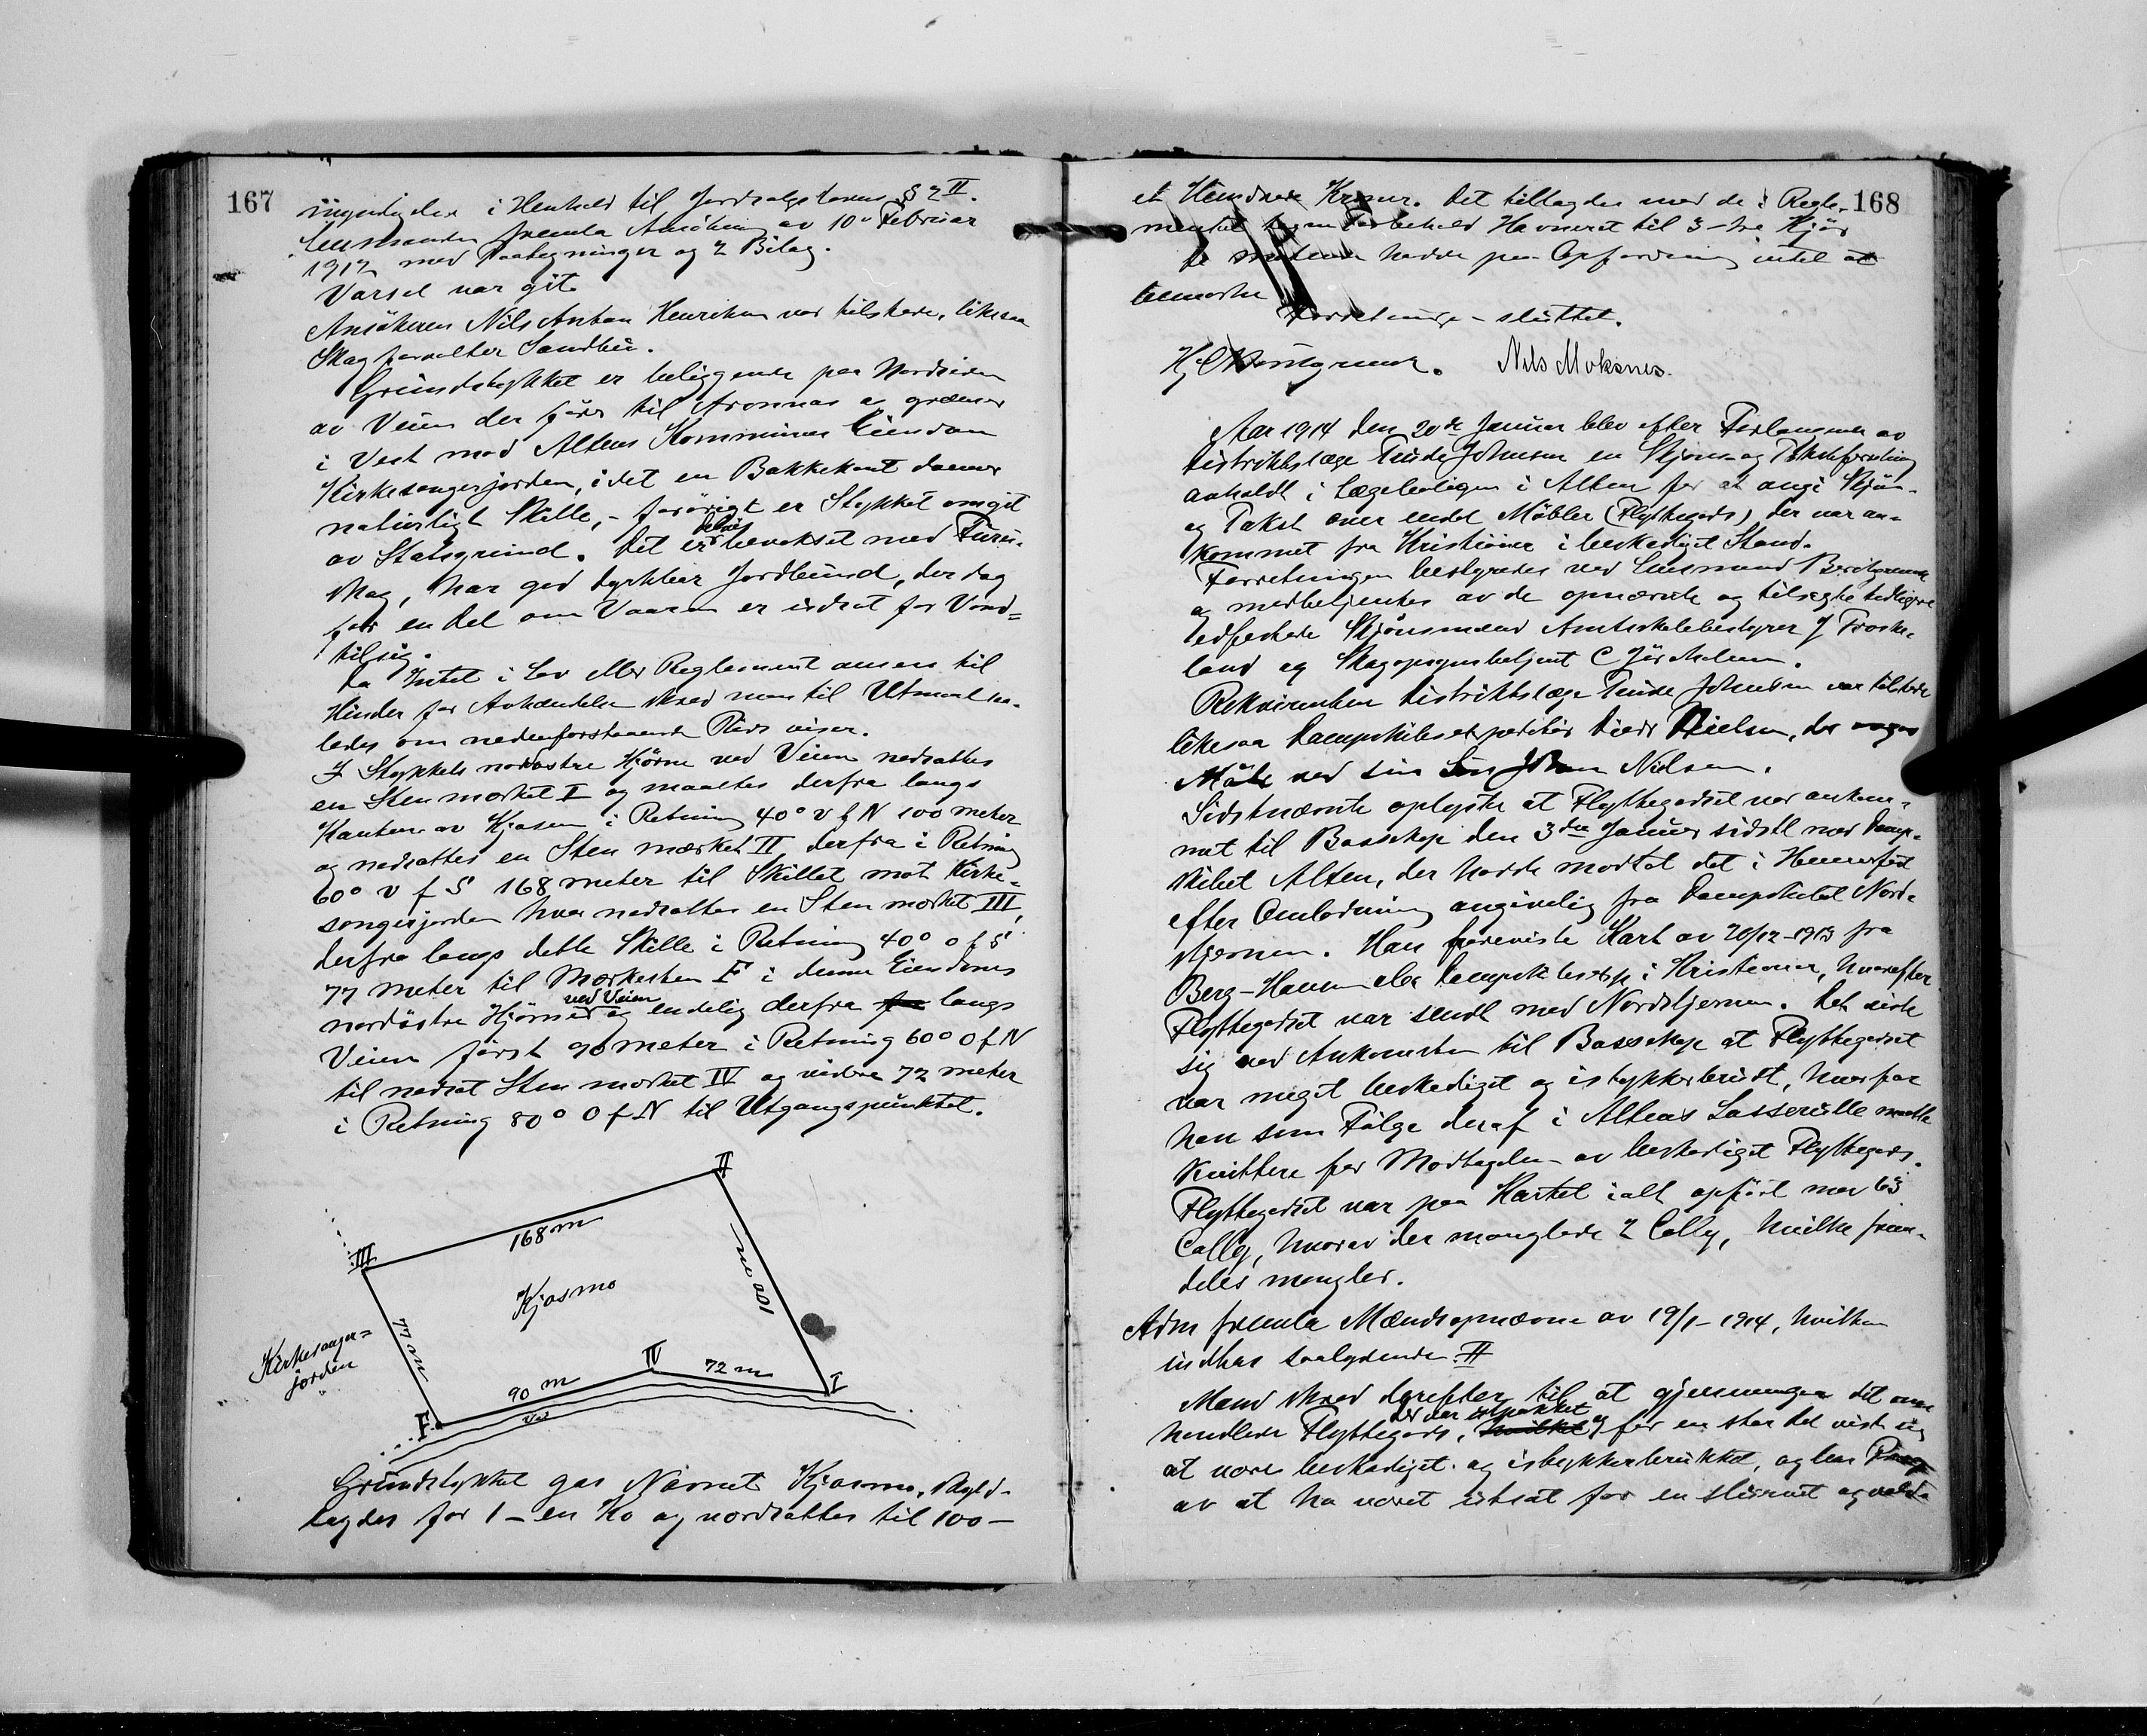 167
i Henhold til Jordsalgslovens § 2 II.
Lensmanden fremla Ansökning av 10de Februar
1912 med Paategninger og 2 Bilag.
Varsel var git.
Ansökeren Nils Anton Henriksen var tilstede, likesaa
Skogforvalter Sandbu.
Grundstykket er beliggende paa Nordsiden
av Veien der förer til Aronnes og grænser
i Vest mod Altens Kommunes Eiendom
Kirkesangerjorden, idet en Bakkekant danner
naturligt Skille, - forövrigt er Stykket omgit
av Statsgrund. Det er delvis bevokset med Furu-
skog, har god dyrkbar Jordbund, der dog
for en Del om Vaaren er utsat for Vand-
tilsig.
Da Intet i Lov eller Reglement ansees til
Hinder for Avhændelse skred man til Utmaal saa-
ledes om nedenforstaaende Rids viser.
I Stykkets nordöstre Hjörne ved Veien nedsattes
en Sten mærket I og maaltes derfra langs
Kanten av Kjosen i Retning 40° v f N 100 meter
og nedsattes en Sten mærket II, derfra i Retning
60° v f S 168 meter til Skillet mot Kirke-
sangerjorden hvor nedsattes en Sten mærket III,
derfra langs dette Skille i Retning 40° o f S
77 meter til Merkesten F i denne Eiendoms
nordöstre Hjörne ved Veien og endelig derfra langs
Veien först 90 meter i Retning 60° O f N
til nedsat Sten mærket IV og videre 72 meter
i Retning 80° O f N til Utgangspunktet.
II
168 m
III
Kjosmo
100 m
77 m
Kirkesanger=
jorden
IV
72 m
90 m
I
F
Vei
Grundstykket gas Navnet Kjosmo, skyld-
lagdes for 1 - en Ko og værdsattes til 100 -
168
et Hundrede Kroner. Det tillagdes med de i Regle-
mentet Forbehold Havneret til 3 - tre Kjör
De mötende hadde paa Opfordring intet at
bemærke
Forretningen - sluttet.
Nils Moksnes.
Aar 1914 den 20de Januar blev efter Forlangende av
Distriktslæge Johnsen en Skjöns- og Takstforretning
avholdt i Lægeboligen i Alten for at avgi Skjön
og Takst over endel Möbler (Flyttegods) der var an-
kommet fra Kristiania i beskadiget Stand.
Forretningen bestyredes ved Lensmand
og medbetjentes av de opnævnte og tilsagte tidligere
edfæstede Skjönsmænd Amtsskolebestyrer J Froste-
land og Skogopsynsbetjent C
Rekvirenten Distriktslæge Johnsen var tilstede
likesaa Dampskibsexpeditör Nielsen, der
Mötte ved sin Sön Johan Nielsen.
Sidstnævnte oplyste at Flyttegodset var ankom-
met til Bossekop den 3die Januar sidstl. med Damp-
skibet Alten, der hadde mottat det i Hammerfest
efter Omladning angivelig fra Dampskibet Nord-
stjernen. Han foreviste Kart av 20/12-1913 fra
Berg-Hansen Dampskibsexp i Kristiania, hvorefter
Flyttegodset var sendt med Nordstjernen. Det viste
sig ved Ankomsten til Bossekop at Flyttegodset
var meget beskadiget og istykkerbrudt, hvorfor
han som Fölge deraf i Altens Losserulle maatte
kvittere for Modtagelsen av beskadiget Flyttegods.
Flyttegodset var paa Kartet ialt opfört med 63
Colly, hvorav der manglede 2 Colly, hvilke frem-
deles mangler.
Adm fremla Mændsopnævnelse av 19/1-1914, hvilken
indtas saalydende: II
Mand skred derefter til at gjennemgaa det om-
handlede Flyttegods, der var utpakket og for en stor Del viste sig
at være beskadiget og istykkerbrukket, og bar Præg
av at ha været utsat for en